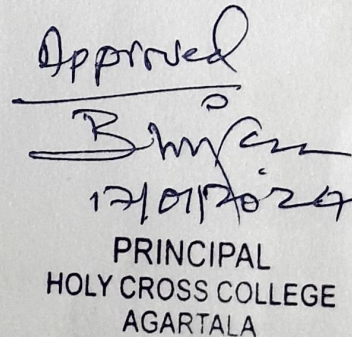 Approved
17/01/2024
PRINCIPAL
HOLY CROSS COLLEGE
AGARTALA